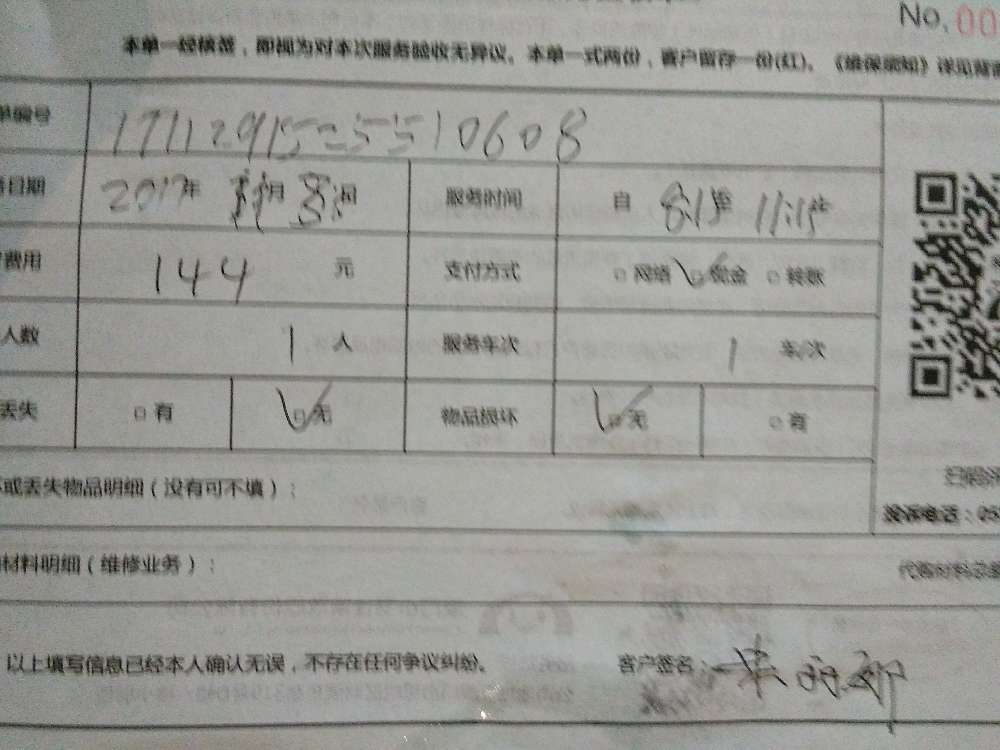 No.00
本单一经核签，即视为对本次服务验收无异议。本单一式两份，客户留存一份(红)。《维保须知》详见背面
单编号 1711291525510608
日期 2017年 月 日 服务时间 自 8:15至 11:15止
费用 144 元 支付方式 □网络 ☑现金 □转账
人数 1 人 服务车次 1 车/次
丢失 □有 ☑无 物品损坏 ☑无 □有
或丢失物品明细（没有可不填）：
投诉电话：05
材料明细（维修业务）： 代购材料
以上填写信息已经本人确认无误，不存在任何争议纠纷。 客户签名：